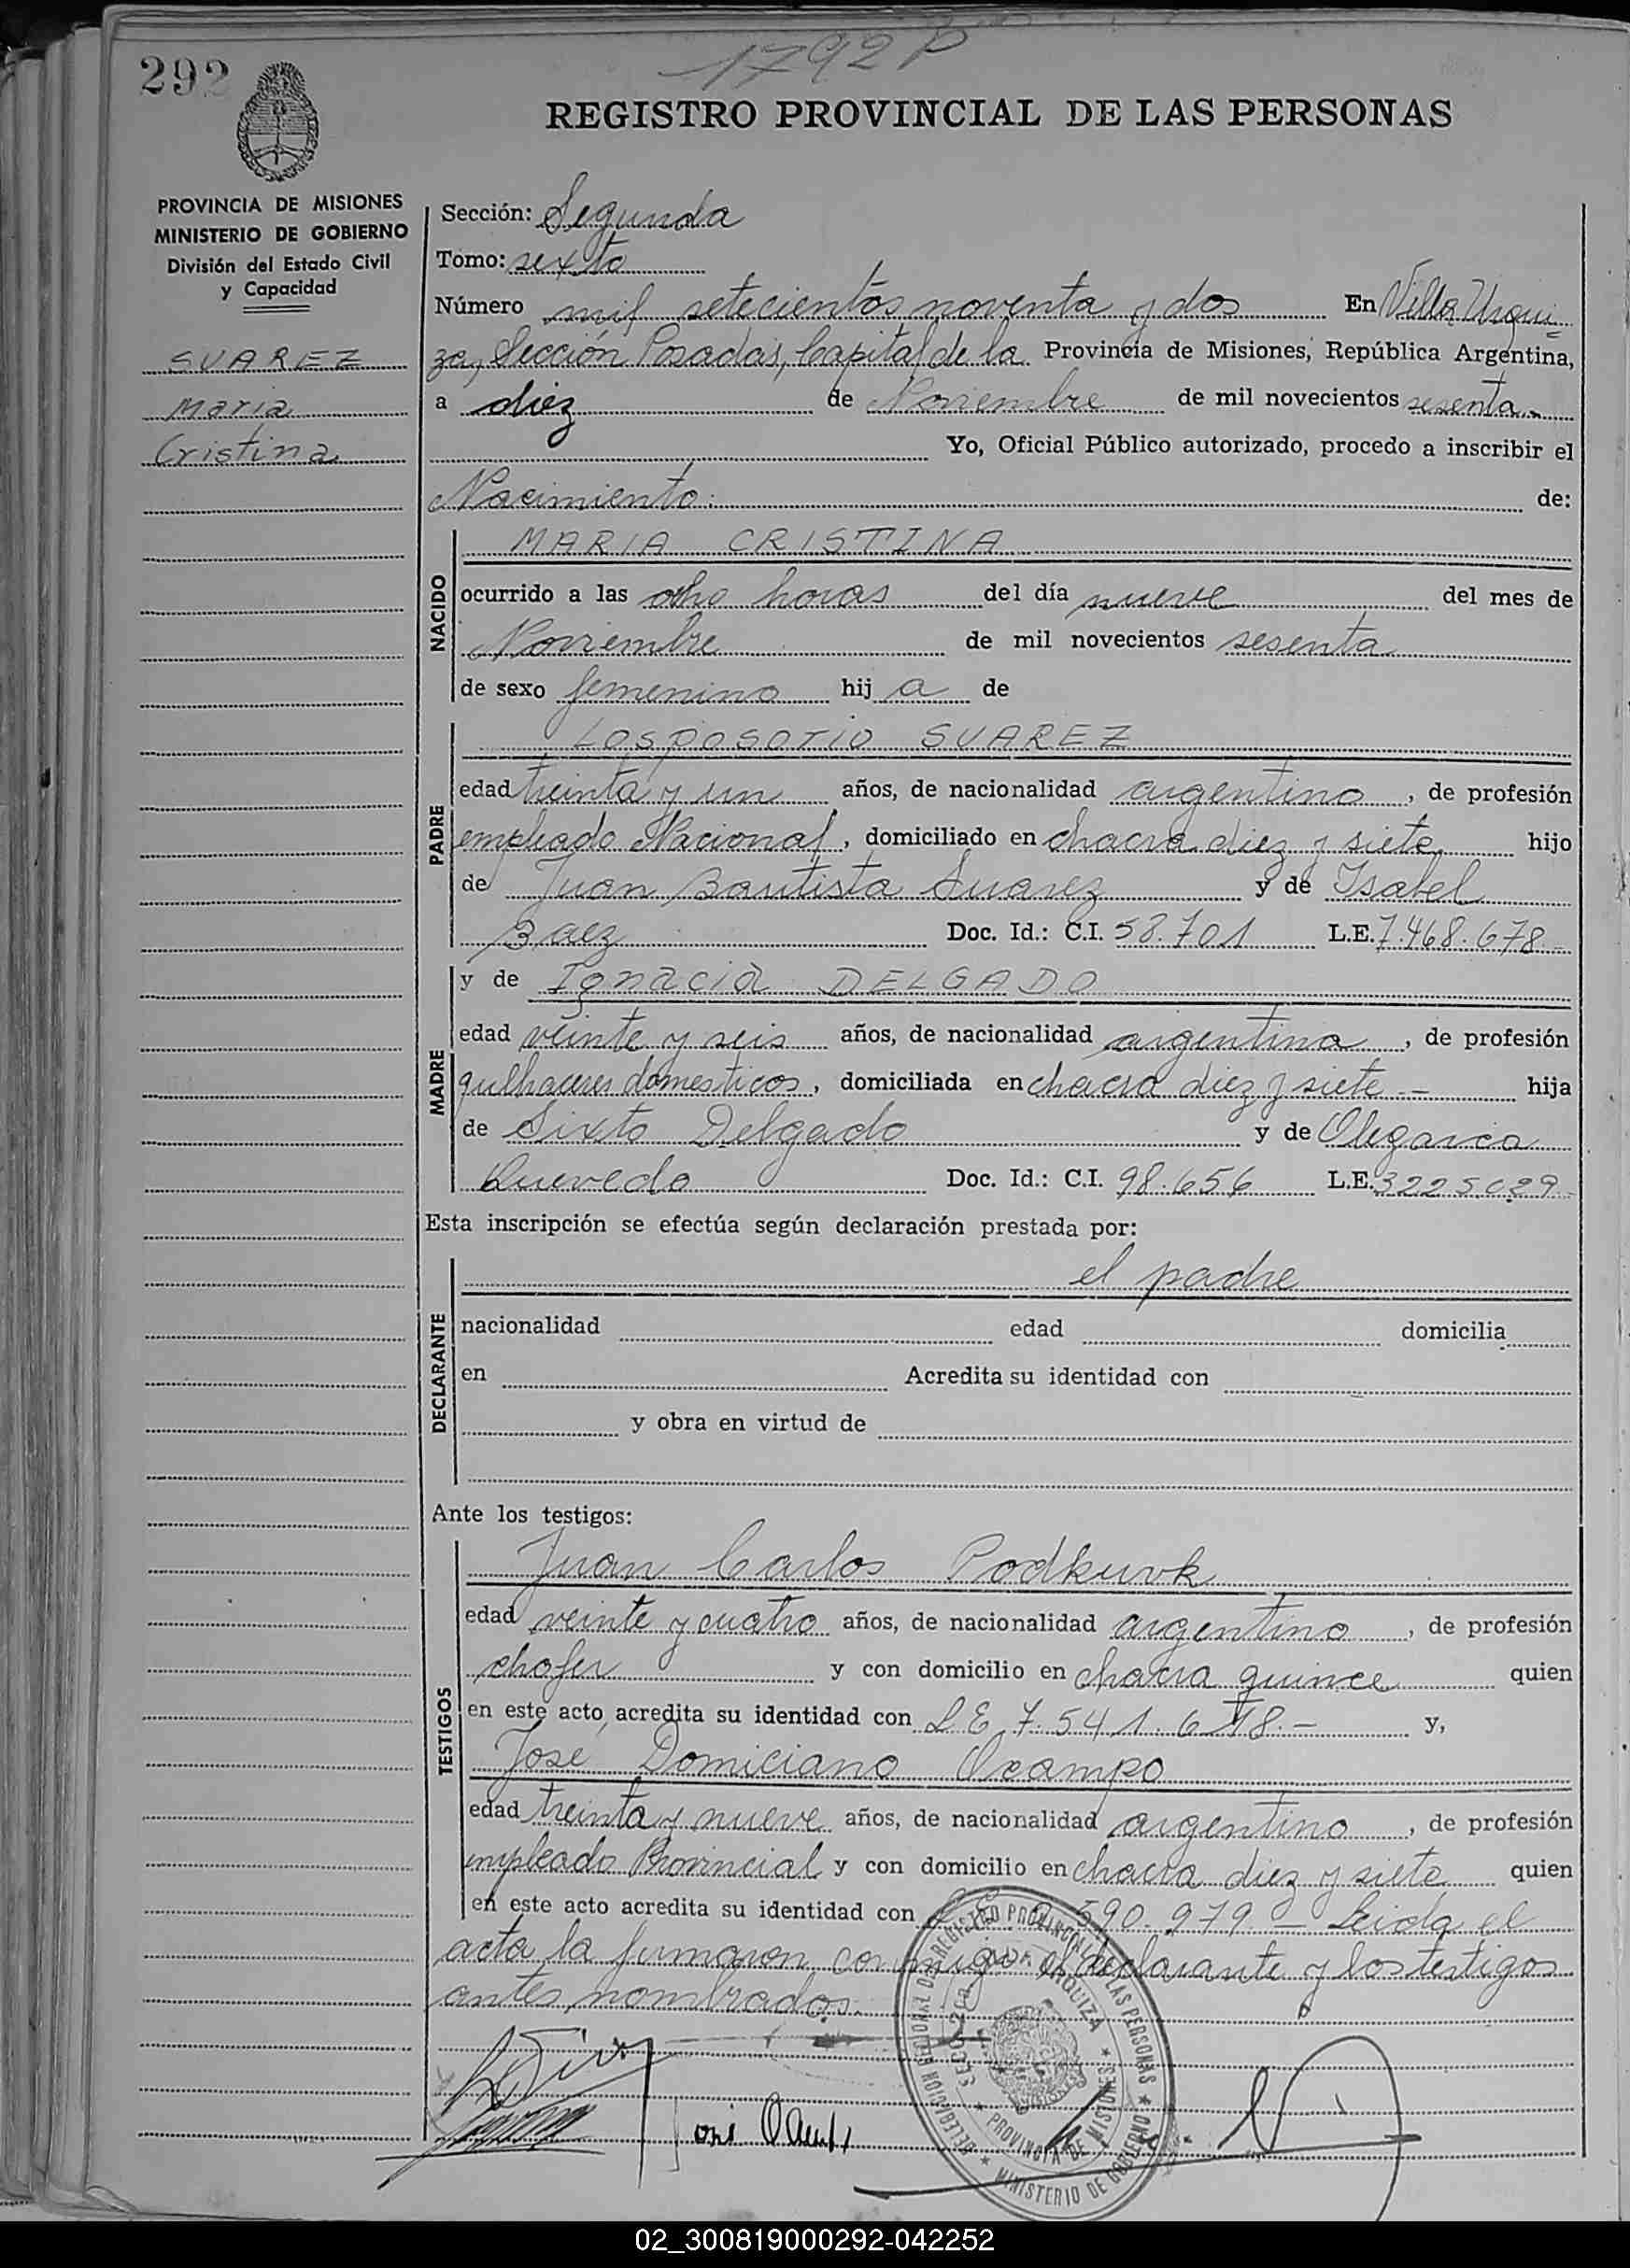 1792 P
292
REGISTRO PROVINCIAL DE LAS PERSONAS
PROVINCIA DE MISIONES
MINISTERIO DE GOBIERNO
División del Estado Civil
y Capacidad
SUAREZ
Maria
Cristina
Sección: Segunda
Tomo: sexto
Número mil setecientos noventa y dos En Villa Urqui=
za, Sección Posadas, Capital de la Provincia de Misiones, República Argentina,
a diez de Noviembre de mil novecientos sesenta.-
Yo, Oficial Público autorizado, procedo a inscribir el
Nacimiento: de:
NACIDO
MARIA CRISTINA
ocurrido a las ocho horas del día nueve del mes de
Noviembre de mil novecientos sesenta
de sexo femenino hij a de
PADRE
LOSPOSORIO SUAREZ
edad treinta y un años, de nacionalidad argentino, de profesión
empleado Nacional, domiciliado en chacra diez y siete hijo
de Juan Bautista Suarez y de Isabel
Baez Doc. Id.: C.I. 58.701 L.E. 7.468.678.-
MADRE
y de Ignacia DELGADO
edad veinte y seis años, de nacionalidad argentina, de profesión
qulhaceres domesticos, domiciliada en chacra diez y siete - hija
de Sixto Delgado y de Olegaria
Quevedo Doc. Id.: C.I. 98.656 L.E.
Esta inscripción se efectúa según declaración prestada por:
DECLARANTE
el padre
nacionalidad edad domicilia
en Acredita su identidad con
y obra en virtud de
Ante los testigos:
TESTIGOS
Juan Carlos Podkuvk
edad veinte y cuatro años, de nacionalidad argentino, de profesión
chofer y con domicilio en chacra quince quien
en este acto acredita su identidad con LE 7.541.618.- y,
Jose Domiciano Ocampo
edad treinta y nueve años, de nacionalidad argentino, de profesión
empleado Provincial y con domicilio en chacra diez y siete quien
en este acto acredita su identidad con 590.979 - Leida el
acta la firmaron conmigo el declarante y los testigos
antes nombrados.
DELEGACION REGIONAL DEL REGISTRO PROVINCIAL DE LAS PERSONAS
VILLA URQUIZA
PROVINCIA DE MISIONES
MINISTERIO DE GOBIERNO
02_300819000292-042252